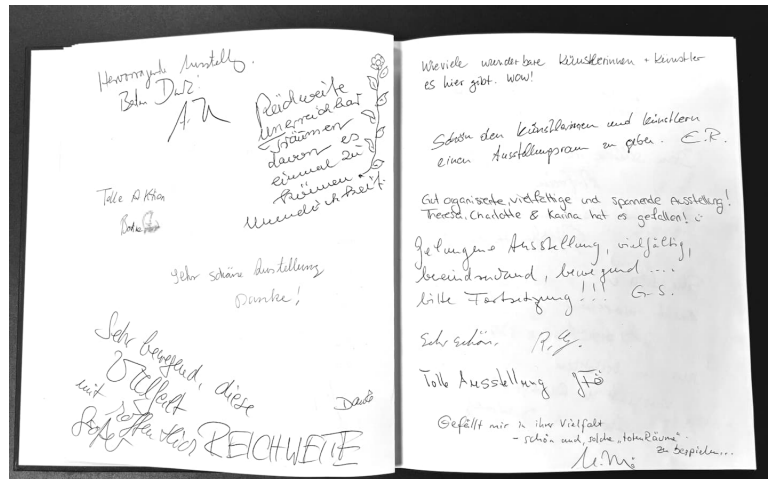 Hervorragende Ausstellg.
Besten Dank!
Reichweite
unerreichbar
Träumen
davon es
einmal zu
können
Unendlichkeit.
Tolle Aktion
Sehr schöne Ausstellung
Danke!
Sehr bewegend, diese
Vielfalt
mit
Danke
REICHWEITE
Wieviele wunderbare Künstlerinnen + Künstler
es hier gibt. Wow!
Schön den Künstlerinnen und Künstlern
einen Ausstellungsraum zu geben. E.R.
Gut organisierte, vielfältige und spannende Ausstellung!
Theresa, Charlotte & Karina hat es gefallen! :)
Gelungene Ausstellung, vielfältig,
beeindruckend, bewegend ....
bitte Fortsetzung!!! G.S.
Sehr schön.
Tolle Ausstellung
Gefällt mir in ihrer Vielfalt
- schön auch, solche "toten Räume"
zu bespielen...